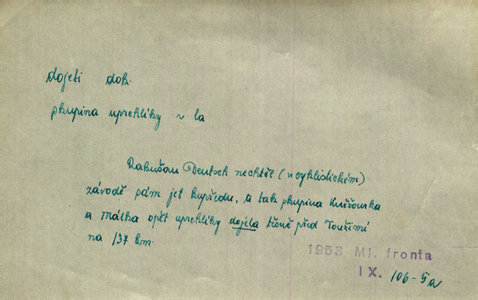 dojeti dok.
skupina uprchlíky v la
Rakušan Deutsch nechtěl (v cyklistickém)
závodě sám jet kupředu, a tak skupina
a Málka opět uprchlíky dojela těsně před Toužimí
na 137 km.
1953 Ml. fronta
IX. 106-5a